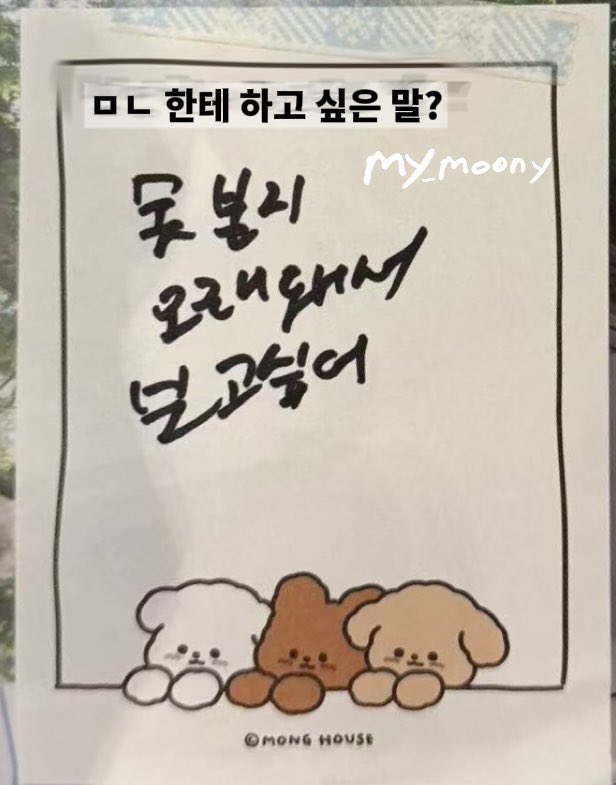 ㅁㄴ 한테 하고 싶은 말?
my_moony
못 본지
오래돼서
보고싶어
©MONG HOUSE